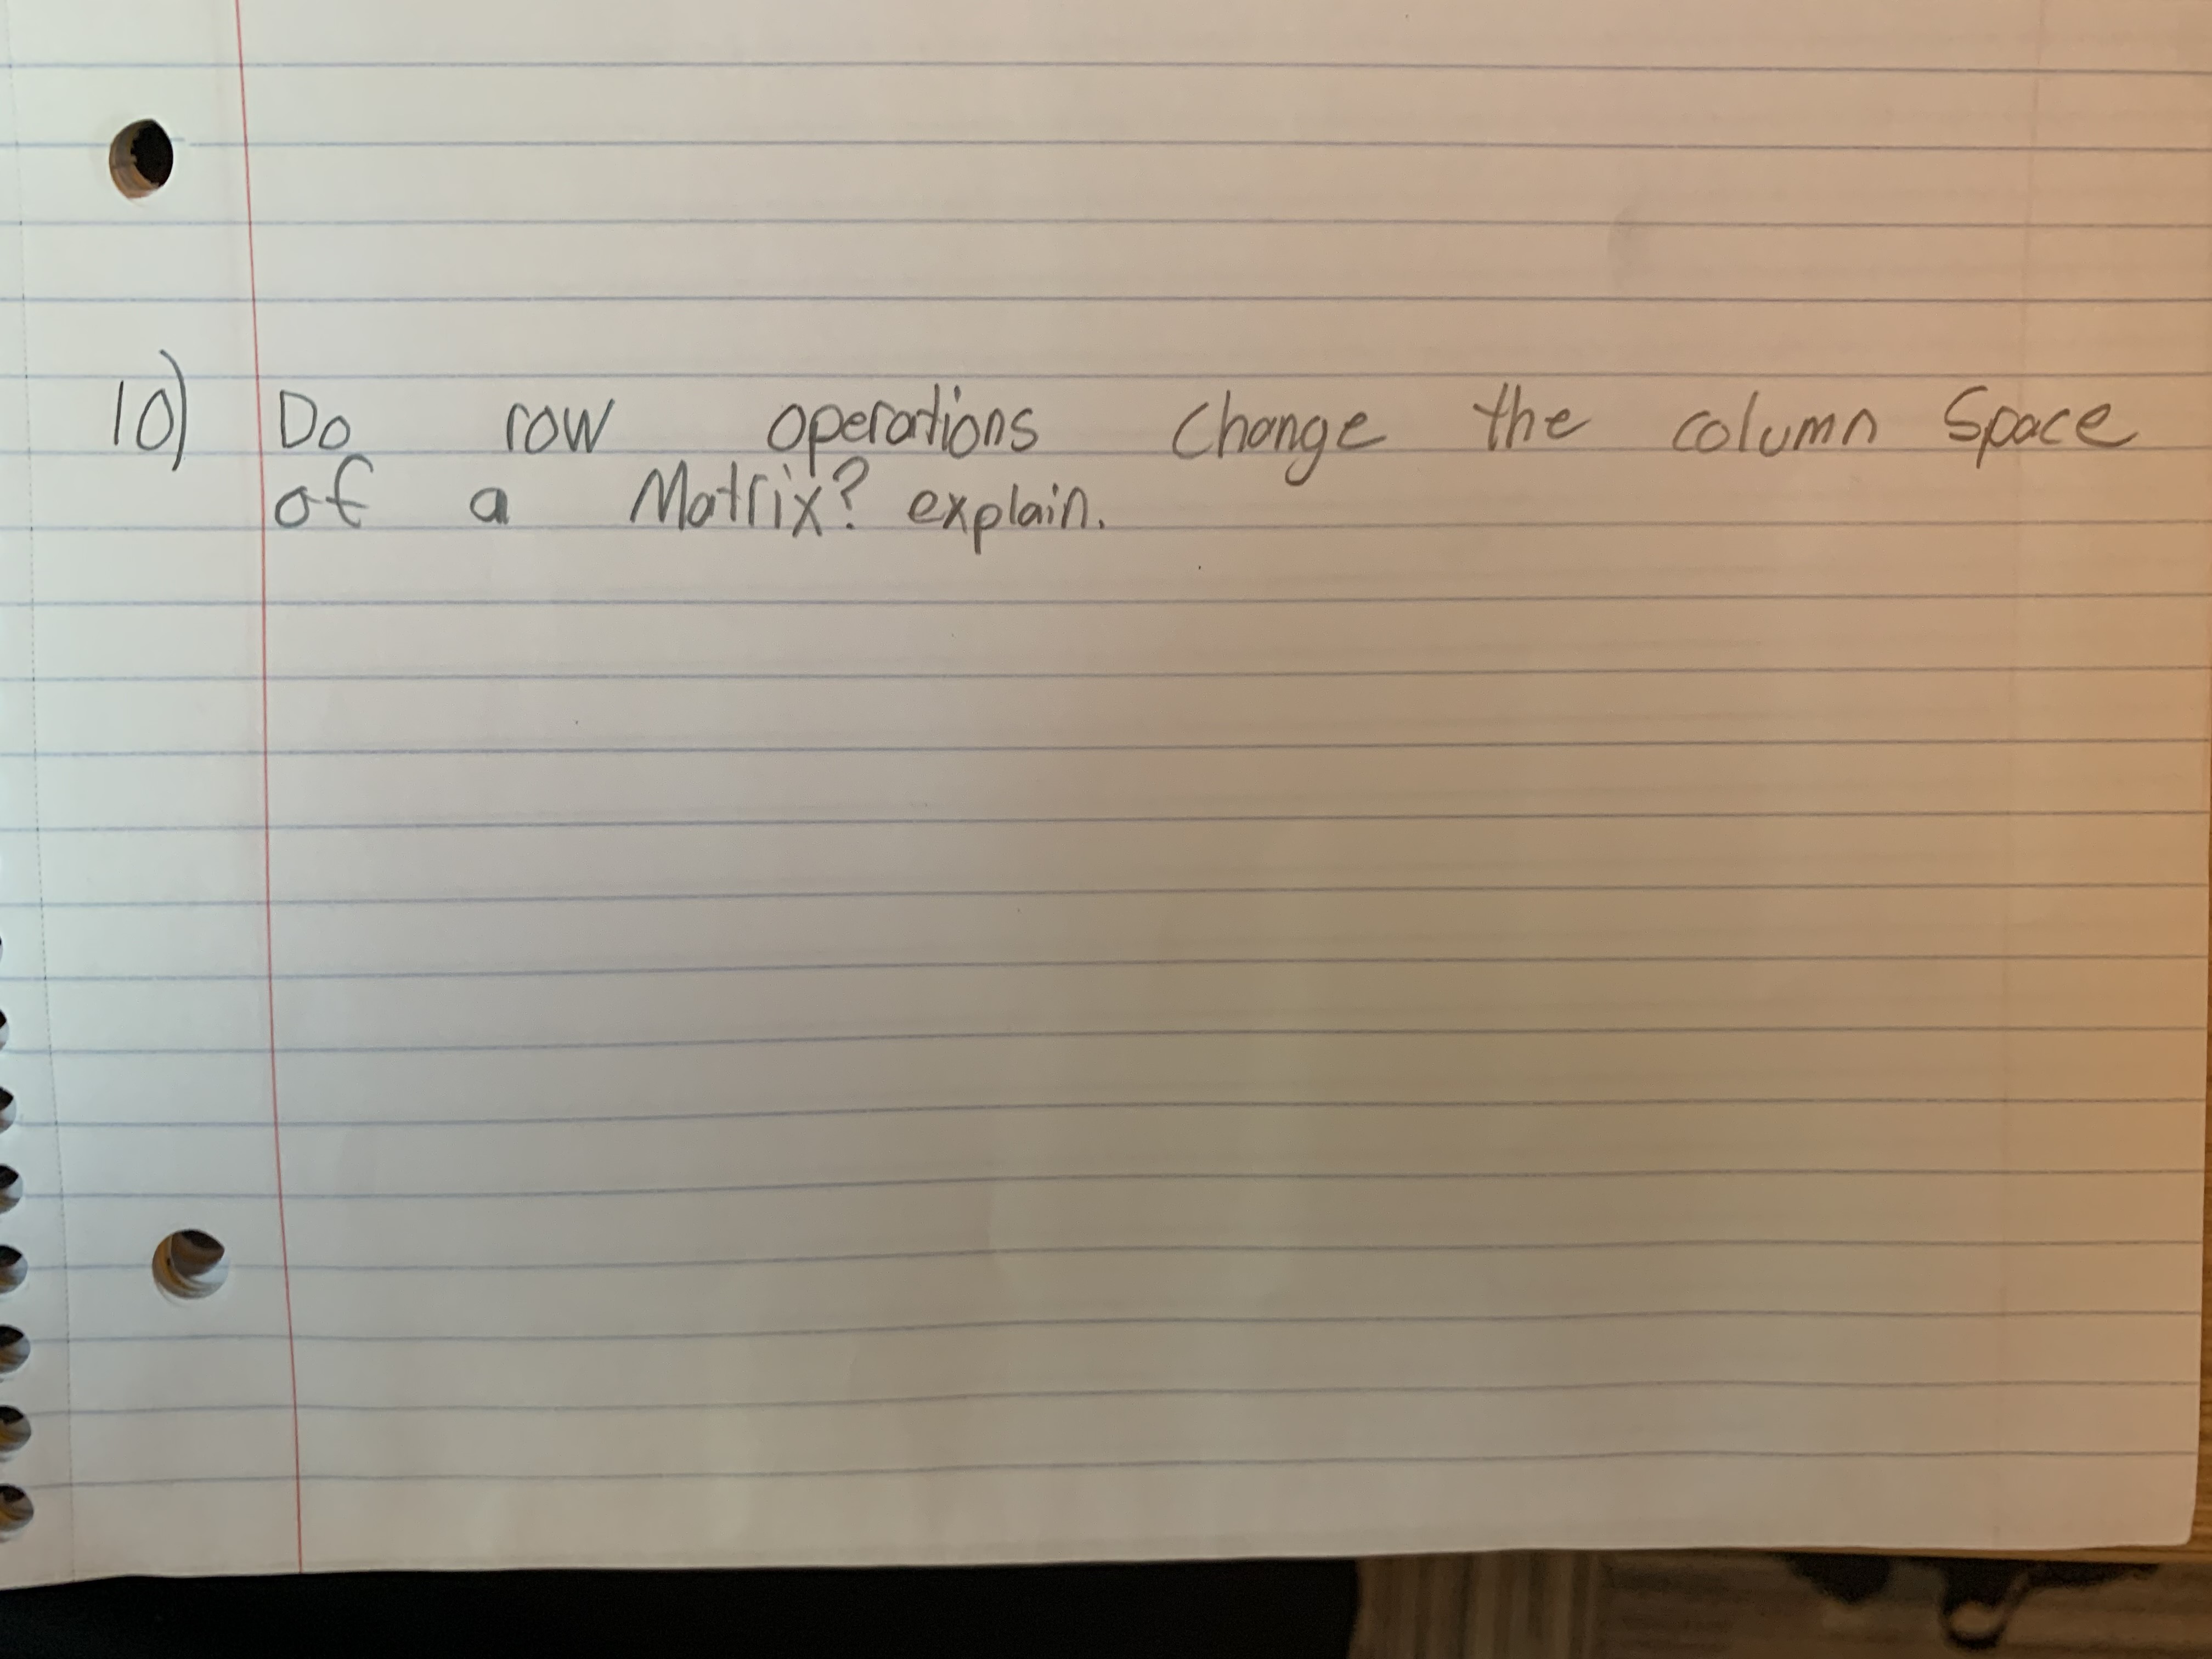 10) Do row operations change the column space
of a Matrix? explain.